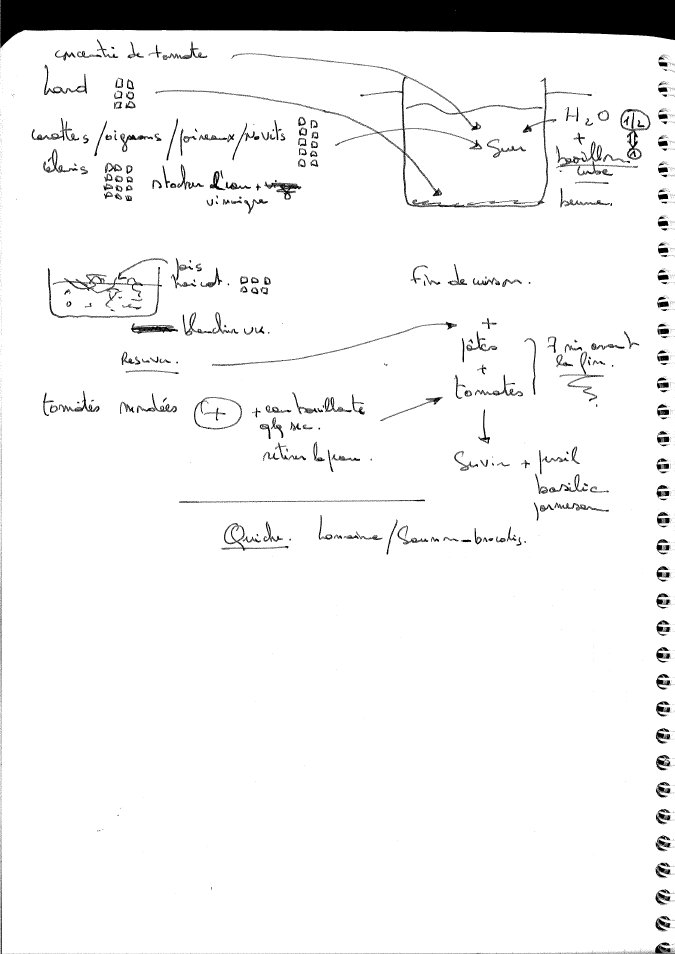 concentré de tomate
Lard
H2O
1/2
+
1
carottes / oignons / poireaux / navets
Suer
bouillon
cube
céleris
stocker d'eau +
vinaigre
beurre.
pois
haricot.
Fin de cuisson.
blanchir
+
Reserver.
pâtes
7 min avant
la fin.
+
tomates
tomates mondées
+
+ eau bouillante
qlq sec.
retirer la peau.
Servir + persil
basilic
parmesan
Quiche. Lorraine / Saumon-brocolis.